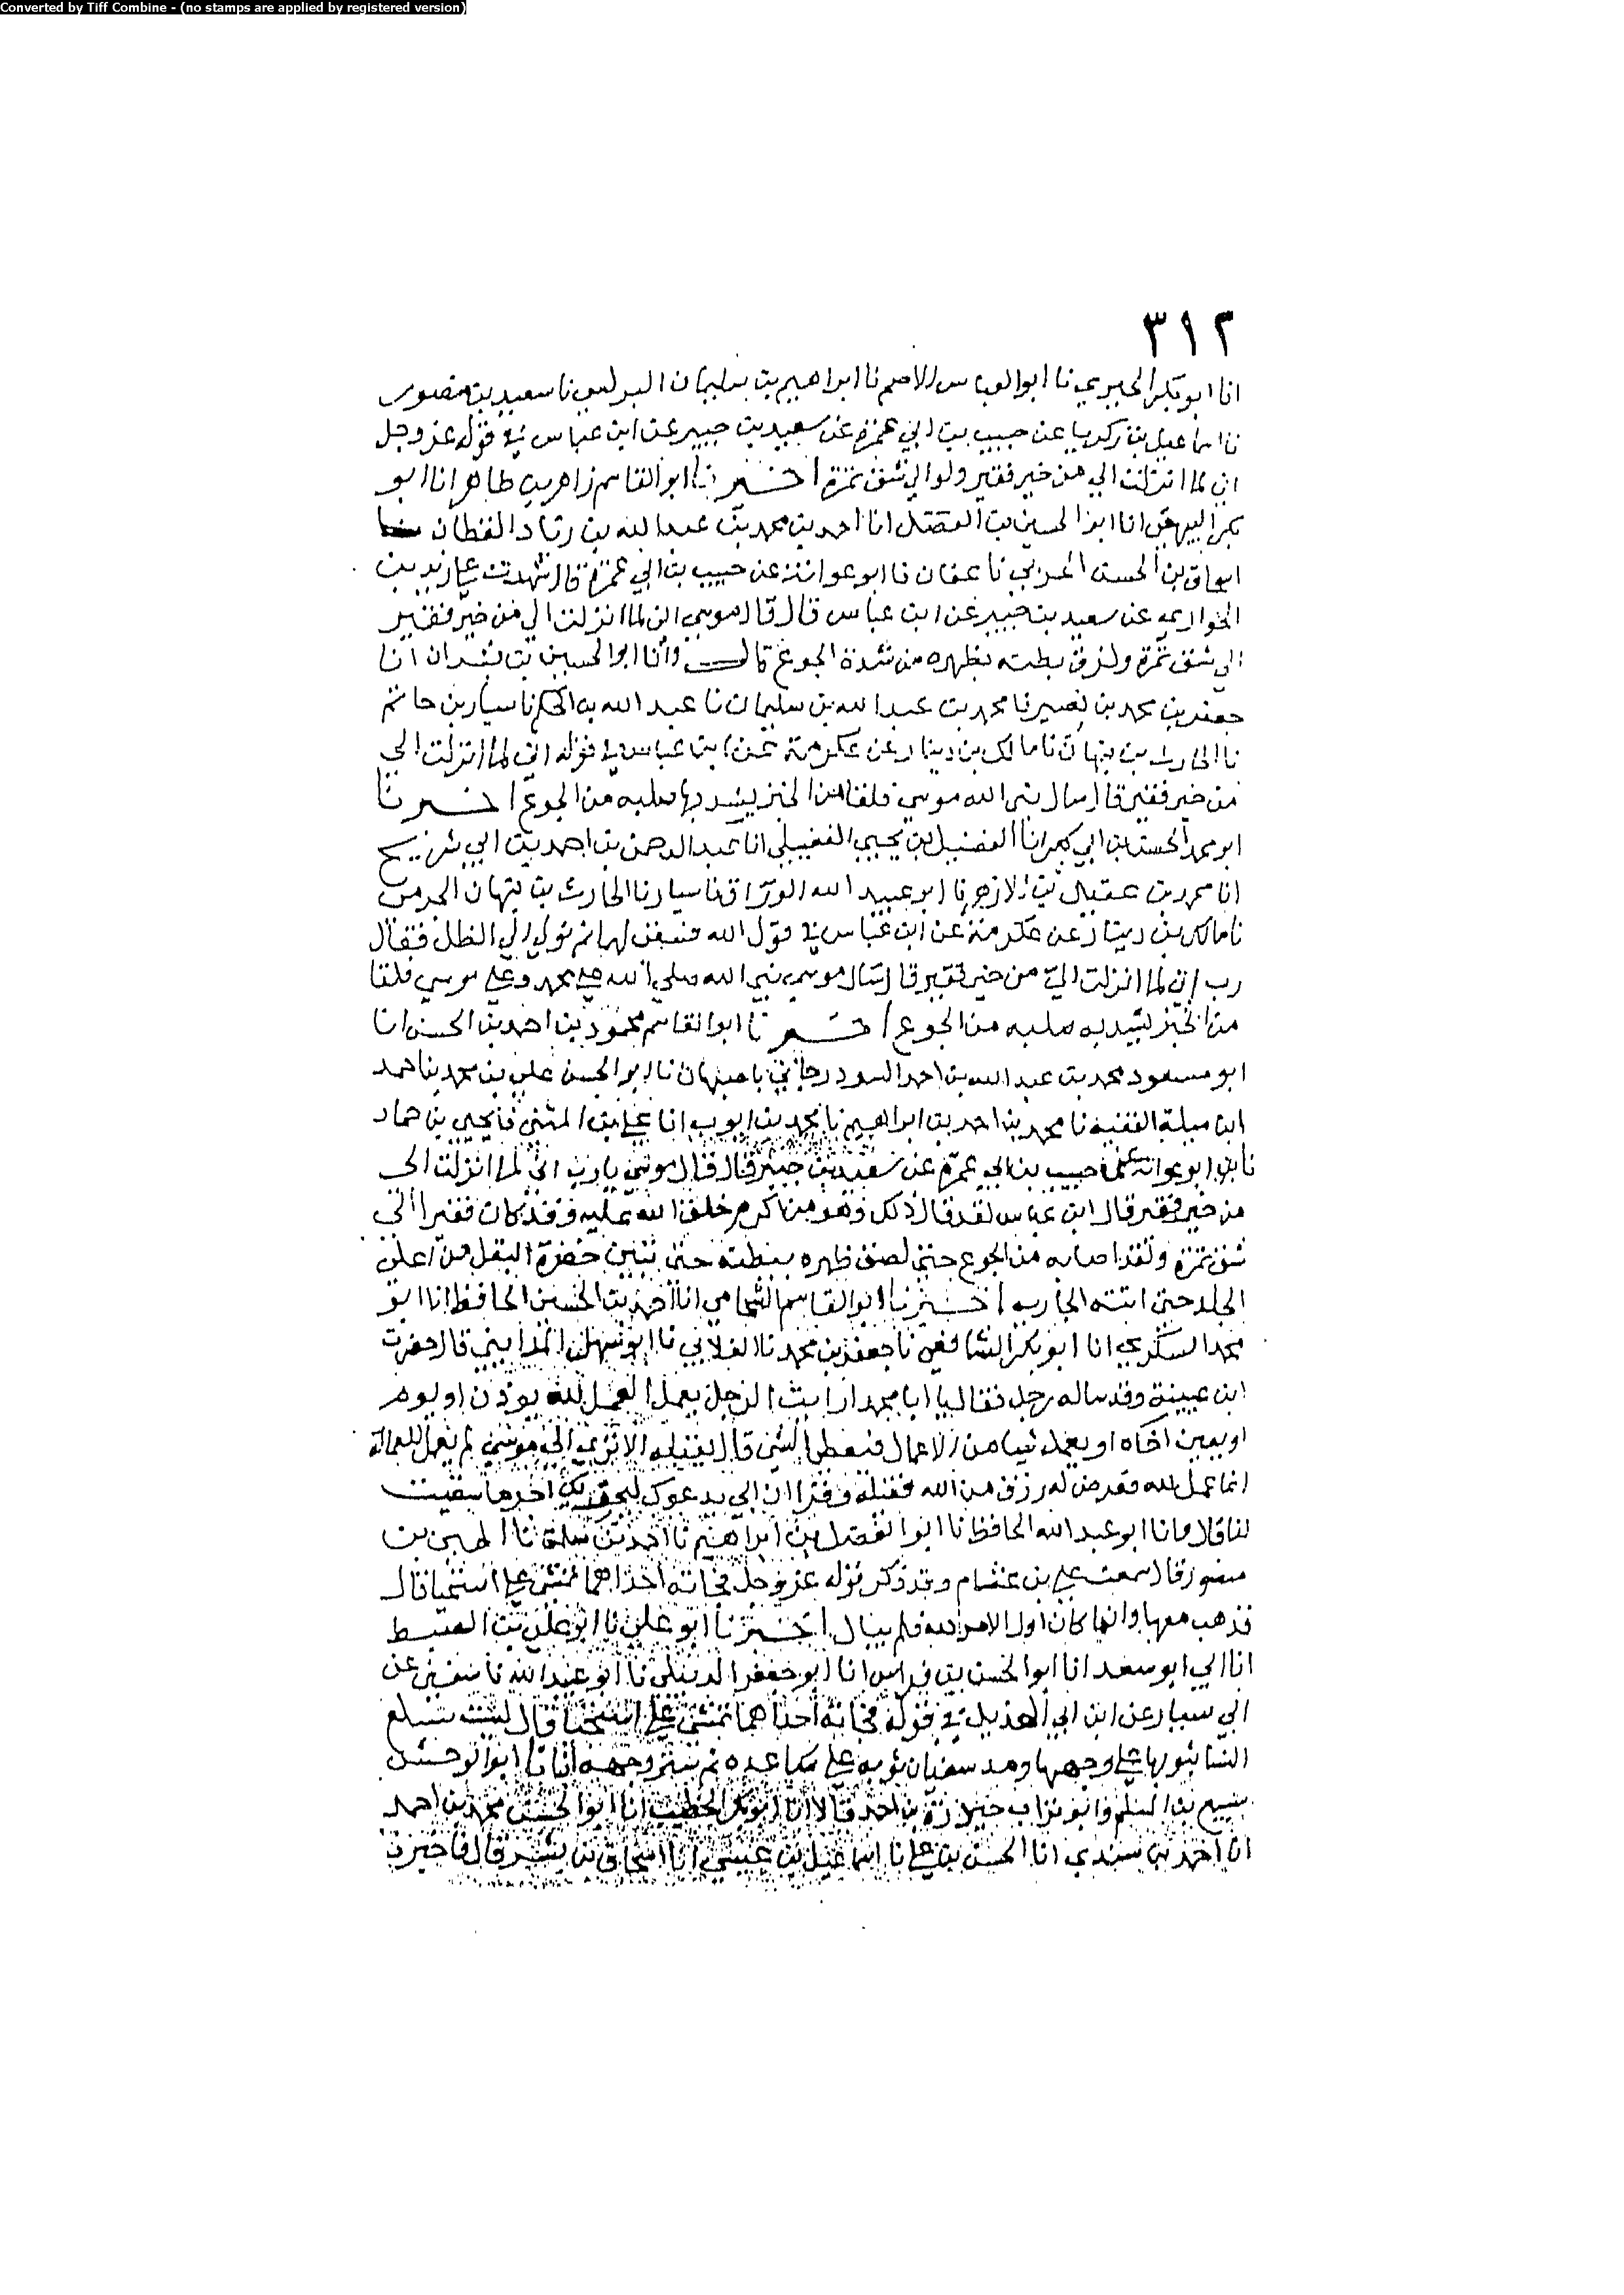 Converted by Tiff Combine - (no stamps are applied by registered version)
٣١٢
انا ابو بكر الحيري نا ابو العباس الاصم نا ابراهيم بن سليمان البرلسي نا سعيد بن منصور
نا اسماعيل بن زكريا عن حبيب بن ابي عمرة عن سعيد بن جبير عن ابن عباس في قوله عز وجل
اني لما انزلت الي من خير فقير ولو الي شق تمرة اخبرنا ابو القاسم زاهر بن طاهر انا ابو
بكر البيهقي انا ابو الحسين بن الفضل انا احمد بن محمد بن عبد الله بن زياد القطان نا
اسحاق بن الحسن الحربي نا عفان نا ابو عوانة عن حبيب بن ابي عمرة قال شهدت علي زيد بن
الحواري عن سعيد بن جبير عن ابن عباس قال قال موسي اني لما انزلت الي من خير فقير
الي شق تمرة ولزق بطنه بظهره من شدة الجوع قال وانا ابو الحسين بن بشران انا
جعفر بن محمد بن نصير نا محمد بن عبد الله بن سليمان نا عبد الله بن الحكم نا سيار بن حاتم
نا الحارث بن نبهان نا مالك بن دينار عن عكرمة عن ابن عباس في قوله اني لما انزلت الي
من خير فقير قال سال نبي الله موسي فلقا من الخبز يشد بها صلبه من الجوع اخبرنا
ابو محمد الحسن بن ابي بكر انا الفضيل بن يحيي الفضيلي انا عبد الرحمن بن احمد بن ابي شريح
انا محمد بن عقيل بن الازهر نا ابو عبيد الله الوراق نا سيار نا الحارث بن نبهان الجرمي
نا مالك بن دينار عن عكرمة عن ابن عباس في قول الله فسقي لهما ثم تولي الي الظل فقال
رب اني لما انزلت الي من خير فقير قال سال موسي نبي الله صلي الله علي محمد وعلي موسي فلقا
من الخبز يشد به صلبه من الجوع اخبرنا ابو القاسم محمود بن احمد بن الحسن انا
ابو مسعود محمد بن عبد الله بن احمد السودرجاني باصبهان نا ابو الحسن علي بن محمد بن احمد
ابن ميلة الفقيه نا محمد بن احمد بن ابراهيم نا محمد بن ايوب انا علي بن المثني نا يحيي بن حماد
نا ابو عوانة عن حبيب بن ابي عمرة عن سعيد بن جبير قال قال موسي يا رب اني لما انزلت الي
من خير فقير قال ابن عباس لقد قال ذلك وهو من اكرم خلق الله عليه وقد كان فقيرا الي
شق تمرة ولقد اصابه من الجوع حتي لصق ظهره ببطنه حتي تبين خضرة البقل من اعلي
الجلد حتي اتته الجارية اخبرنا ابو القاسم الشحامي انا احمد بن الحسين الحافظ انا ابو
محمد السكري انا ابو بكر الشافعي نا جعفر بن محمد نا الغلابي نا ابو سهل المدايني قال حضرت
ابن عيينة وقد ساله رجل فقال يا ابا محمد ارايت الرجل يعمل العمل لله يوذن او يوم
او يعين اخاه او يعمل شيا من الاعمال فيعطي الشي قال يقبله الا تري الي موسي لم يعمل للعمالة
انما عمل لله فعرض له رزق من الله فقبله وقرا ان ابي يدعوك ليجزيك اجر ما سقيت
لنا قال وانا ابو عبد الله الحافظ نا ابو الفضل بن ابراهيم نا احمد بن سلمة نا الحسين بن
منصور قال سمعت علي بن عثام وقد ذكر قوله عز وجل فجاته احداهما تمشي علي استحيا قال
فذهب معها وانما كان اول الامر لله فلم يبال اخبرنا ابو علي نا ابو علي بن السبط
انا ابي ابو سعد انا ابو الحسن بن فراس انا ابو جعفر الديبلي نا ابو عبد الله نا سفين عن
ابي سيار عن ابن ابي الهذيل في قوله فجاته احداهما تمشي علي استحيا قال ليست بسلفع
النسا بثوبها علي وجهها ومد سفيان ثوبه علي ساعده ثم ستر وجهه انانا ابو الوحش
سبيع بن المسلم وابو تراب حيدرة بن احمد قالا انا ابو بكر الخطيب انا ابو الحسن محمد بن احمد
انا احمد بن سندي انا الحسن بن علي نا اسماعيل بن عيسي انا اسحاق بن بشر قال فاخبرنا